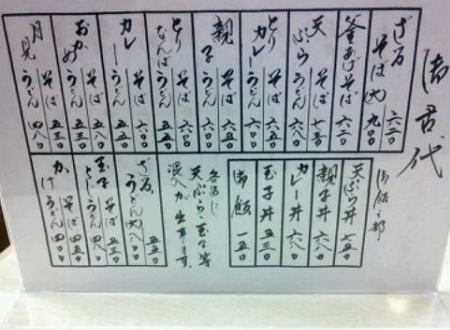 御古代
ざる 六三〇
そば(大) 九〇〇
釜あげそば 六三〇
天ぷら そば 七五〇
うどん 六八〇
とりカレー そば
うどん 六八〇
親子 そば 六〇〇
うどん
とりなんば そば 六〇〇
うどん 五五〇
カレー そば 五八〇
うどん 五三〇
おかめ そば
うどん 五三〇
月見 そば 五三〇
うどん 四八〇
御飯之部
天ぷら丼 七五〇
親子丼 六八〇
カレー丼 六八〇
玉子丼 五三〇
御飯 一五〇
各品に
天ぷら・玉子等
混入が出来ます。
ざる 五五〇
うどん(大) 八〇〇
玉子とじ そば 五三〇
うどん 四八〇
かけ そば 四五〇
うどん 四〇〇